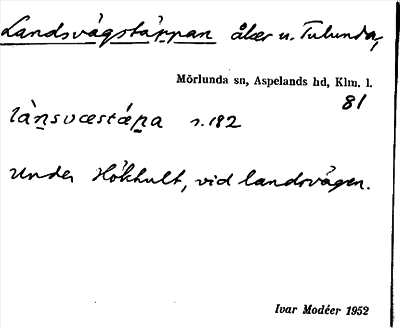 Landsvägstäppan åker u. Tulunda,
Mörlunda sn, Aspelands hd, Klm. l.
81
lànsvæstæ̀pa s. 182
Under Hökhult, vid landsvägen.
Ivar Modéer 1952